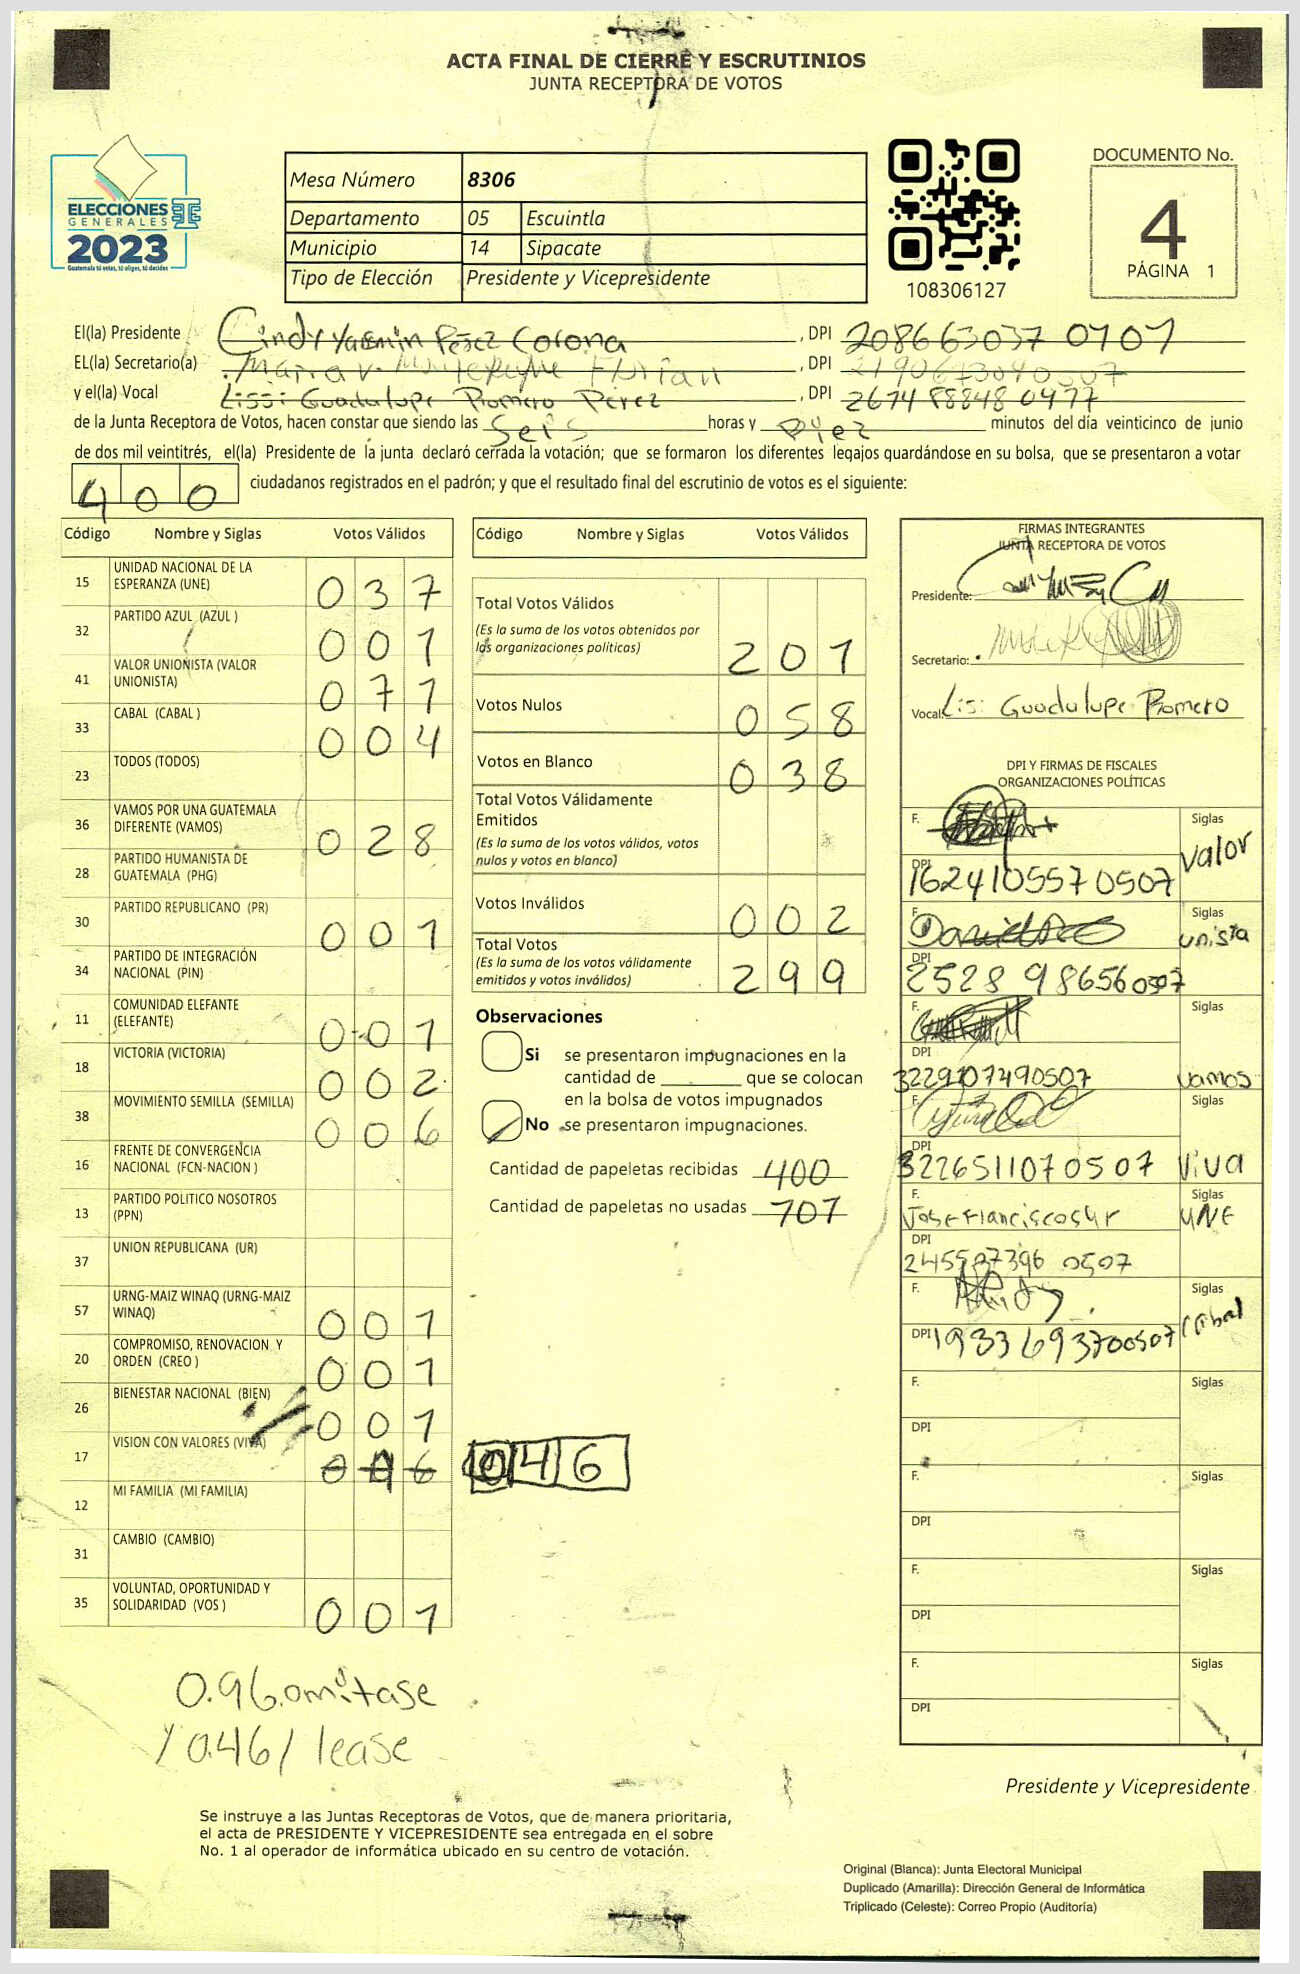 ACTA FINAL DE CIERRE Y ESCRUTINIOS
JUNTA RECEPTORA DE VOTOS
ELECCIONES
GENERALES
2023
Guatemala tú votas, tú eliges, tú decides
Mesa Número 8306
Departamento 05 Escuintla
Municipio 14 Sipacate
Tipo de Elección Presidente y Vicepresidente
108306127
DOCUMENTO No.
4
PÁGINA 1
El(la) Presidente Cindy Yasmin Pérez Corona, DPI 208663037 0101
EL(la) Secretario(a) Florian, DPI
y el(la) Vocal Lissi Guadalupe Romero Perez, DPI 2674 88848 0477
de la Junta Receptora de Votos, hacen constar que siendo las Seis horas y Diez minutos del día veinticinco de junio
de dos mil veintitrés, el(la) Presidente de la junta declaró cerrada la votación; que se formaron los diferentes legajos guardándose en su bolsa, que se presentaron a votar
400 ciudadanos registrados en el padrón; y que el resultado final del escrutinio de votos es el siguiente:
Código Nombre y Siglas Votos Válidos
15 UNIDAD NACIONAL DE LA ESPERANZA (UNE) 037
32 PARTIDO AZUL (AZUL ) 001
41 VALOR UNIONISTA (VALOR UNIONISTA) 071
33 CABAL (CABAL ) 004
23 TODOS (TODOS)
36 VAMOS POR UNA GUATEMALA DIFERENTE (VAMOS) 028
28 PARTIDO HUMANISTA DE GUATEMALA (PHG)
30 PARTIDO REPUBLICANO (PR) 001
34 PARTIDO DE INTEGRACIÓN NACIONAL (PIN)
11 COMUNIDAD ELEFANTE (ELEFANTE) 001
18 VICTORIA (VICTORIA) 002
38 MOVIMIENTO SEMILLA (SEMILLA) 006
16 FRENTE DE CONVERGENCIA NACIONAL (FCN-NACION )
13 PARTIDO POLITICO NOSOTROS (PPN)
37 UNION REPUBLICANA (UR)
57 URNG-MAIZ WINAQ (URNG-MAIZ WINAQ) 001
20 COMPROMISO, RENOVACION Y ORDEN (CREO ) 001
26 BIENESTAR NACIONAL (BIEN) 001
17 VISION CON VALORES (VIVA) 046
12 MI FAMILIA (MI FAMILIA)
31 CAMBIO (CAMBIO)
35 VOLUNTAD, OPORTUNIDAD Y SOLIDARIDAD (VOS ) 001
0.96.omitase
y 0.46/ lease
Código Nombre y Siglas Votos Válidos
Total Votos Válidos
(Es la suma de los votos obtenidos por
las organizaciones políticas) 201
Votos Nulos 058
Votos en Blanco 038
Total Votos Válidamente
Emitidos
(Es la suma de los votos válidos, votos
nulos y votos en blanco)
Votos Inválidos 002
Total Votos
(Es la suma de los votos válidamente
emitidos y votos inválidos) 299
Observaciones
Si se presentaron impugnaciones en la
cantidad de ________ que se colocan
en la bolsa de votos impugnados
No se presentaron impugnaciones.
Cantidad de papeletas recibidas 400
Cantidad de papeletas no usadas 707
FIRMAS INTEGRANTES
JUNTA RECEPTORA DE VOTOS
Presidente:
Secretario:
Vocal: Lisi Guadalupe Romero
DPI Y FIRMAS DE FISCALES
ORGANIZACIONES POLÍTICAS
F. Siglas
Valor
DPI 1624105570507
F. Siglas
unista
DPI 2528 98656 0507
F. Siglas
DPI 3229107490507 vamos
F. Siglas
DPI 3226511070507 VIVA
F. Jose Francisco Siglas
UNE
DPI 245537396 0507
F. Siglas
DPI 1933693700507 Cabal
F. Siglas
DPI
F. Siglas
DPI
F. Siglas
DPI
F. Siglas
DPI
Presidente y Vicepresidente
Se instruye a las Juntas Receptoras de Votos, que de manera prioritaria,
el acta de PRESIDENTE Y VICEPRESIDENTE sea entregada en el sobre
No. 1 al operador de informática ubicado en su centro de votación.
Original (Blanca): Junta Electoral Municipal
Duplicado (Amarilla): Dirección General de Informática
Triplicado (Celeste): Correo Propio (Auditoría)